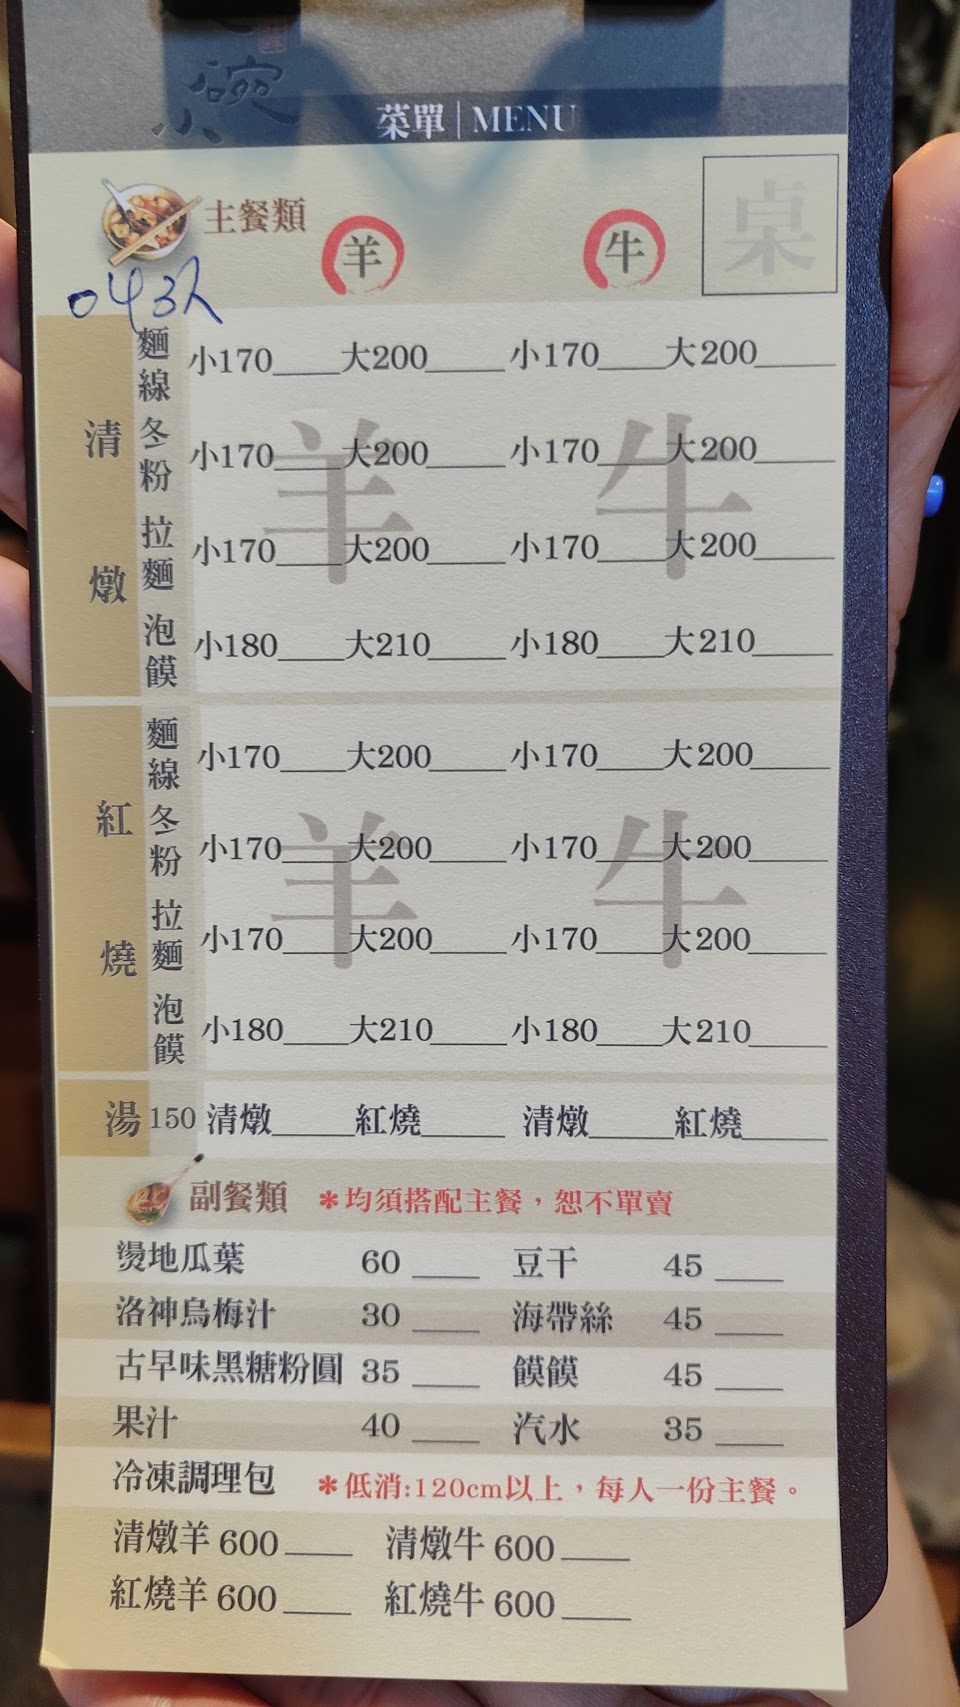 小碗
菜單|MENU
主餐類 羊 牛 桌
043人
清燉
麵線 小170____大200____ 小170____大200____
冬粉 小170____大200____ 小170____大200____
拉麵 小170____大200____ 小170____大200____
泡饃 小180____大210____ 小180____大210____
羊 牛
紅燒
麵線 小170____大200____ 小170____大200____
冬粉 小170____大200____ 小170____大200____
拉麵 小170____大200____ 小170____大200____
泡饃 小180____大210____ 小180____大210____
羊 牛
湯 150 清燉____紅燒____ 清燉____紅燒____
副餐類 *均須搭配主餐，恕不單賣
燙地瓜葉 60 ____ 豆干 45 ____
洛神烏梅汁 30 ____ 海帶絲 45 ____
古早味黑糖粉圓 35 ____ 饃饃 45 ____
果汁 40 ____ 汽水 35 ____
冷凍調理包 *低消:120cm以上，每人一份主餐。
清燉羊 600____ 清燉牛 600____
紅燒羊 600____ 紅燒牛 600____